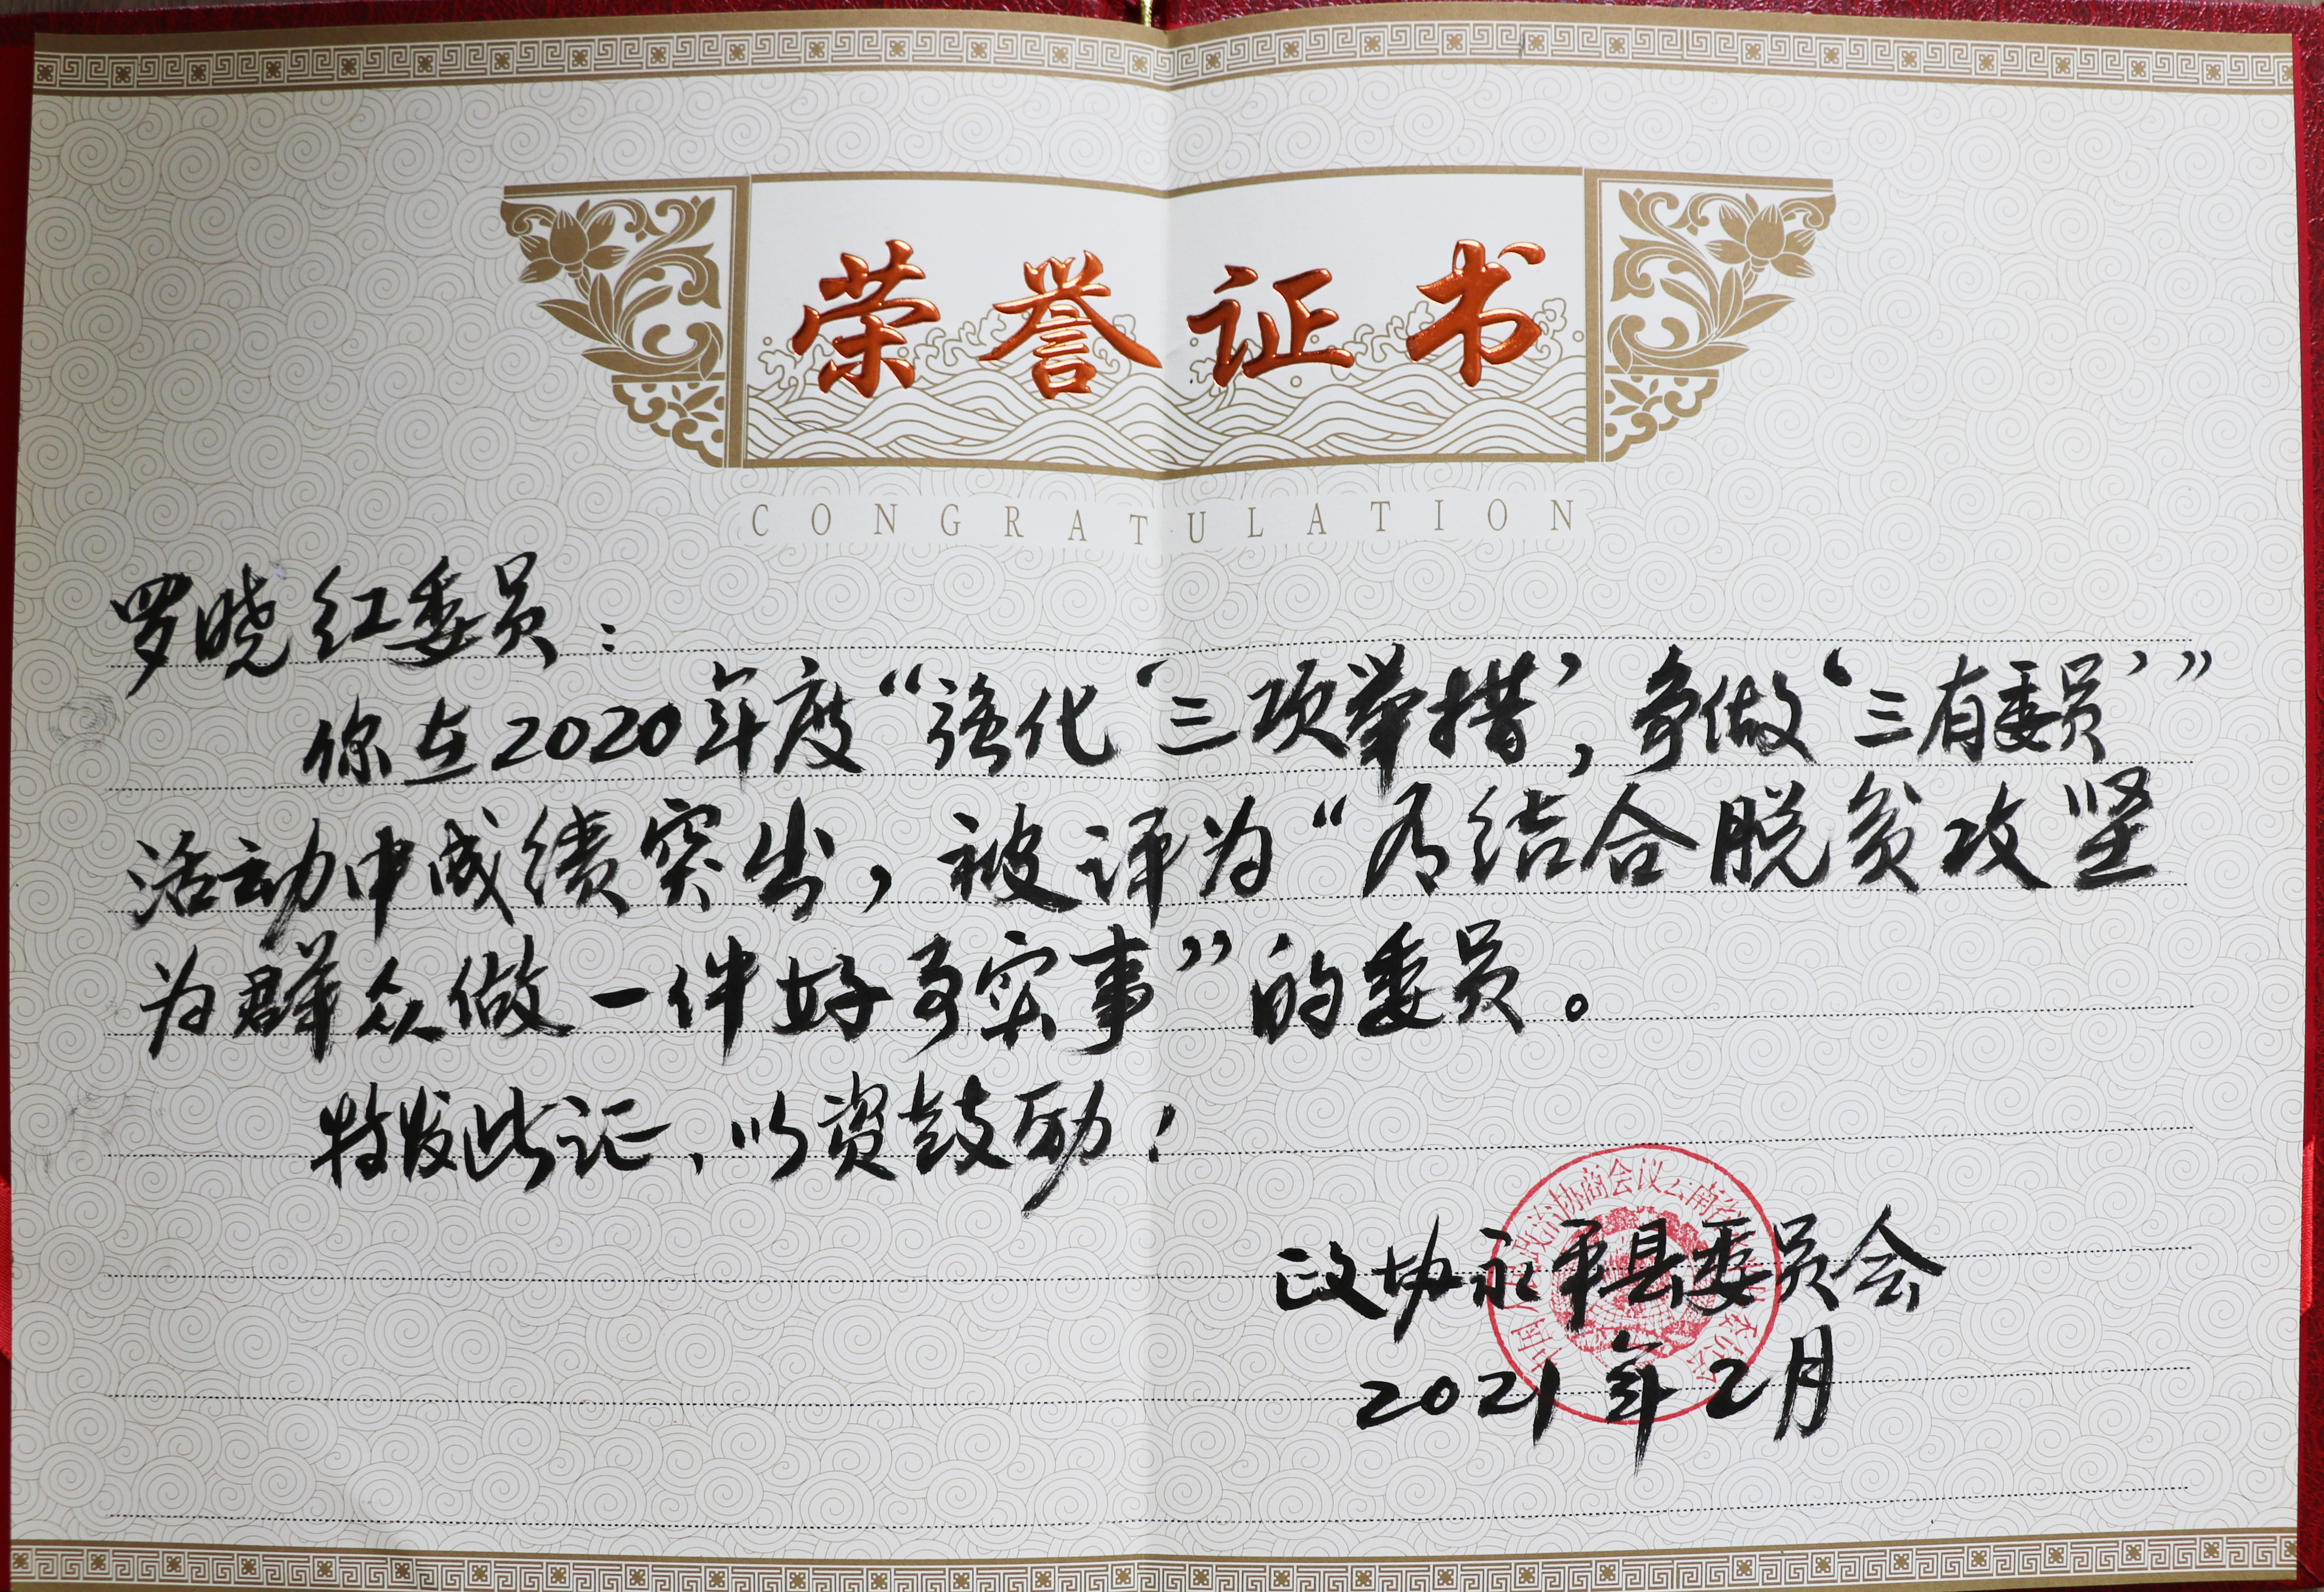 荣誉证书
CONGRATULATION
罗晓红委员：
你在2020年度“强化‘三项举措’，争做‘三有委员’”
活动中成绩突出，被评为“有结合脱贫攻坚
为群众做一件好事实事”的委员。
特发此证，以资鼓励！
政协永平县委员会
2021年2月
政治协商会议云南省